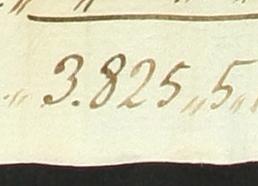 „ 3.825„5„